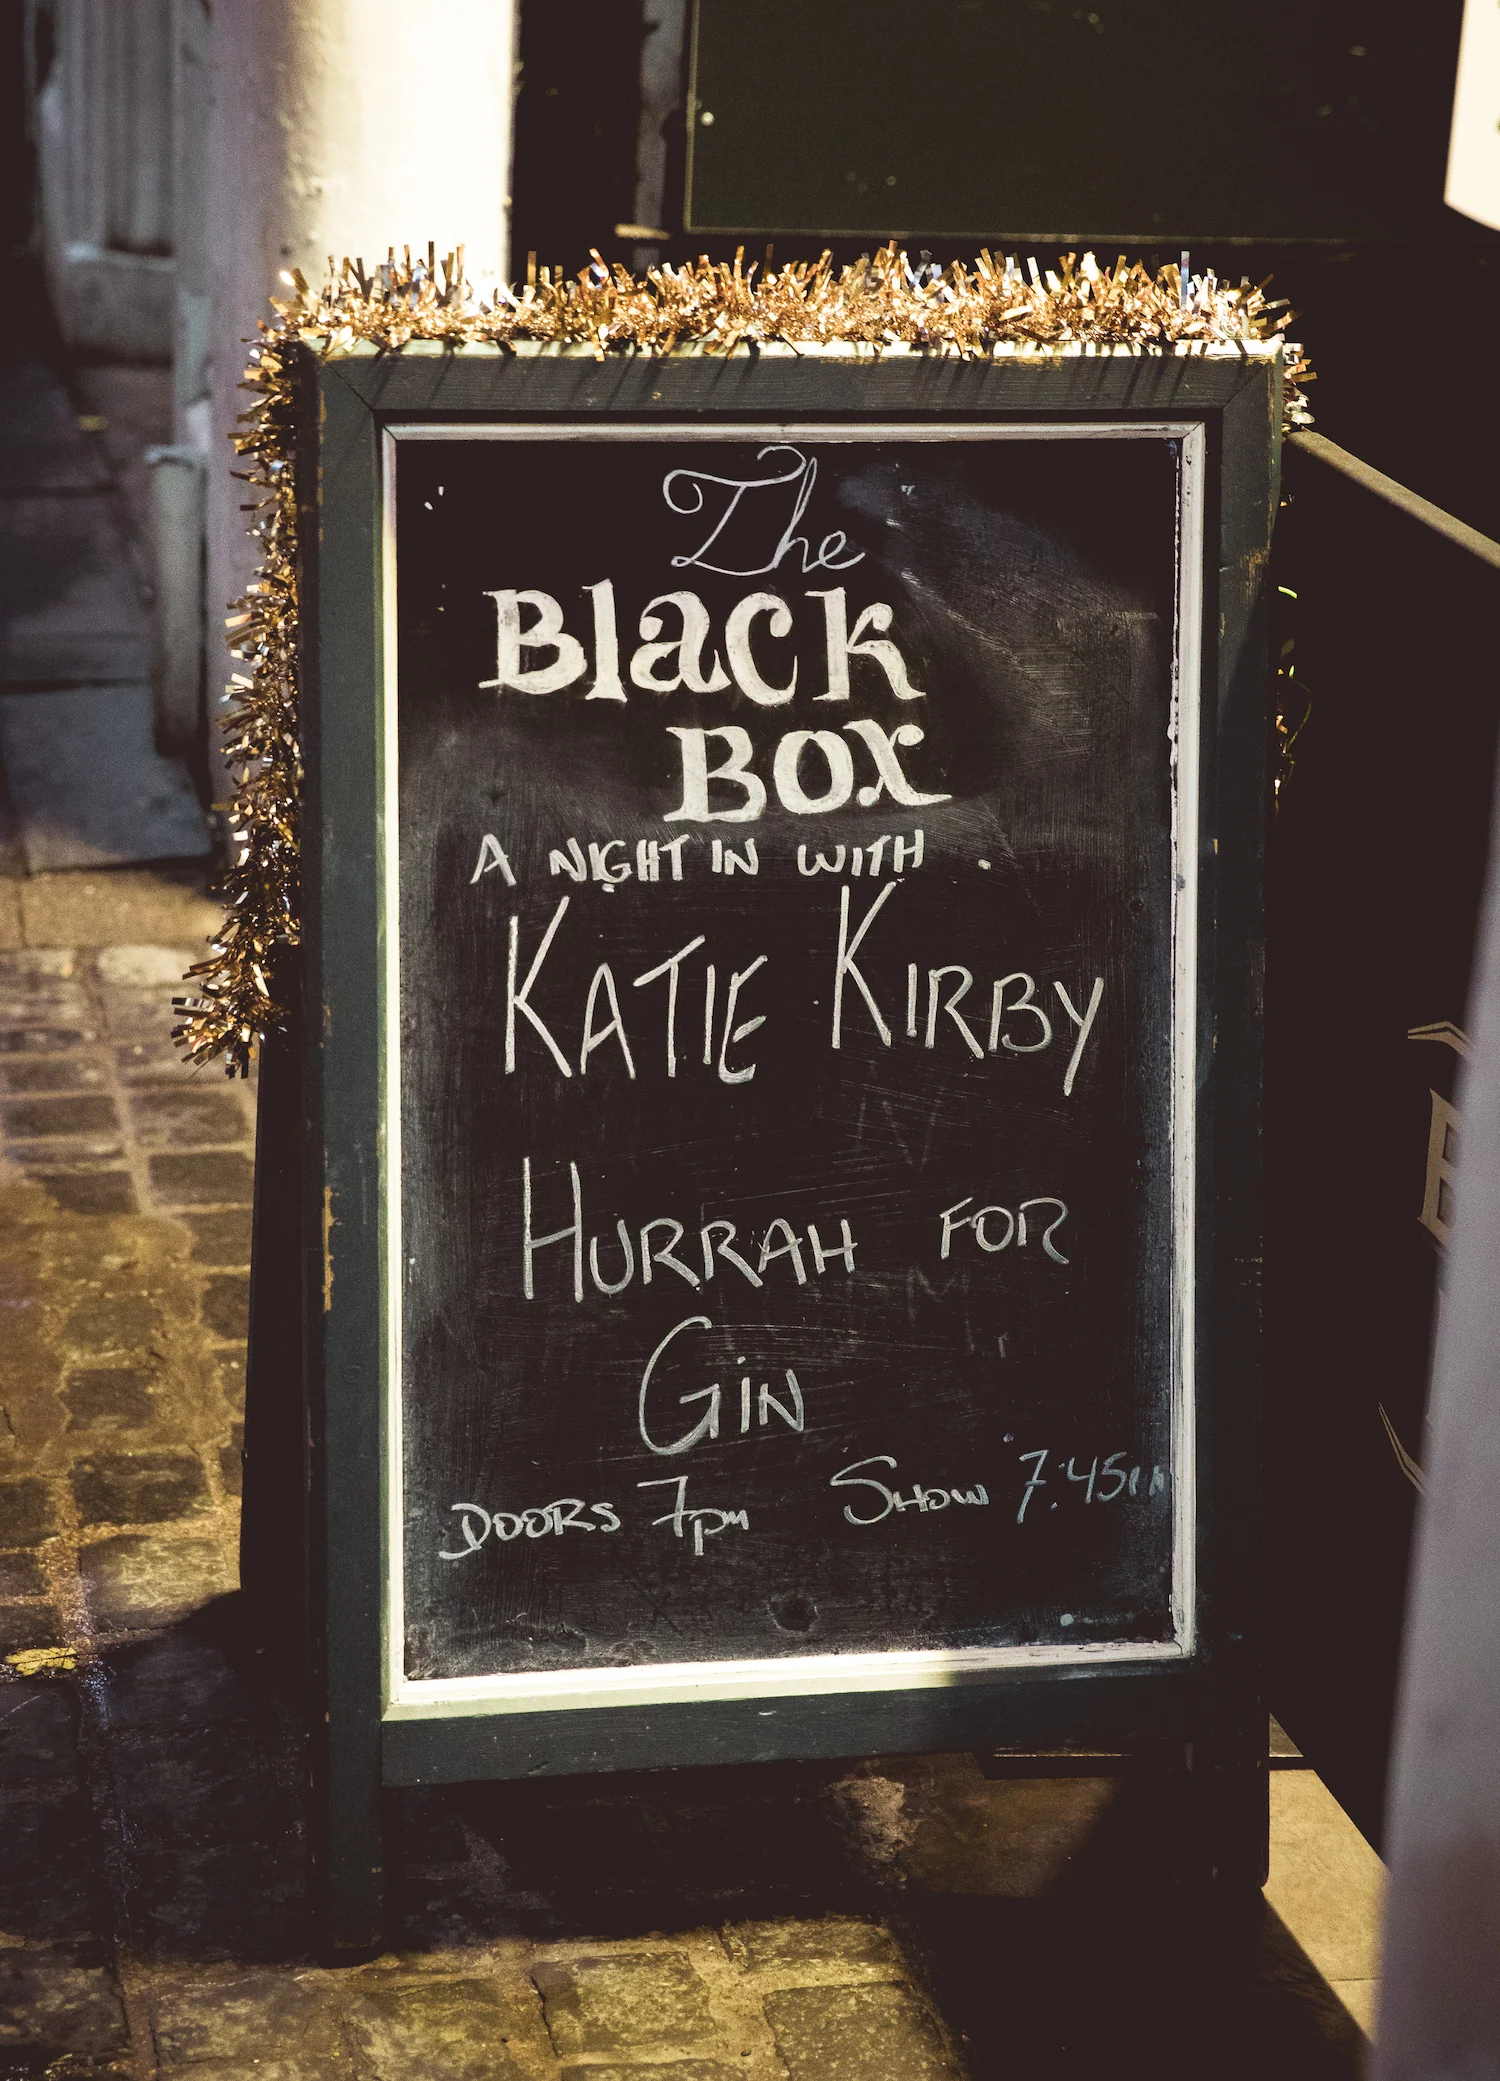 The
Black
Box
A NIGHT IN WITH
KATIE KIRBY
HURRAH FOR
GIN
DOORS 7pm SHOW 7:45pm